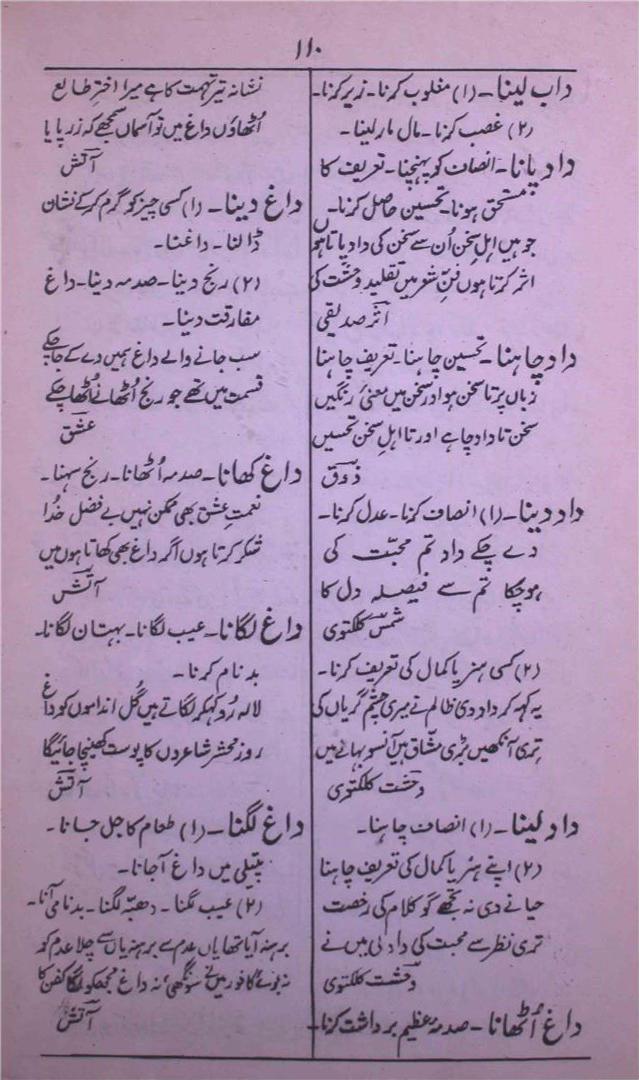 ۱۱۰
داب لینا۔ (۱) مغلوب کرنا۔ زیر کرنا۔
(۲) غصب کرنا۔ مال مار لینا۔
داد پانا۔ انصاف کو پہنچنا۔ تعریف کا
مستحق ہونا۔ تحسین حاصل کرنا۔
جو ہیں اہلِ سخن اُن سے سخن کی داد پاتا ہوں
اثر کرتا ہوں فنِّ شعر میں تقلید وحشت کی
اثر صدیقی
داد چاہنا۔ تحسین چاہنا۔ تعریف چاہنا
زباں پر تا سخن ہو اور سخن میں معنیٔ رنگیں
سخن تا داد چاہے اور تا اہلِ سخن تحسیں
ذوق
داد دینا۔ (۱) انصاف کرنا۔ عدل کرنا۔
دے چکے داد تم محبّت کی
ہو چکا تم سے فیصلہ دل کا
شمس کلکتوی
(۲) کسی ہنر یا کمال کی تعریف کرنا۔
یہ کہہ کر داد دی ظالم نے میری چشمِ گریاں کی
تری آنکھیں بڑی مشّاق ہیں آنسو بہانے میں
وحشت کلکتوی
داد لینا۔ (۱) انصاف چاہنا۔
(۲) اپنے ہنر یا کمال کی تعریف چاہنا
حیا نے دی نہ تجھے گو کلام کی رخصت
تری نظر سے محبت کی داد لی میں نے
وحشت کلکتوی
داغ اُٹھانا۔ صدمۂ عظیم برداشت کرنا۔
نشانہ تیرِ تہمت کا ہے میرا اخترِ طالع
اُٹھاؤں داغ میں تو آسماں سمجھے کہ زر پایا
آتش
داغ دینا۔ (۱) کسی چیز کو گرم کرکے نشان
ڈالنا۔ داغنا۔
(۲) رنج دینا۔ صدمہ دینا۔ داغ
مفارقت دینا۔
سب جانے والے داغ ہمیں دے کے جا چکے
قسمت میں تھے جو رنج اُٹھانے اُٹھا چکے
عشق
داغ کھانا۔ صدمہ اُٹھانا۔ رنج سہنا۔
نعمتِ عشق بھی ممکن نہیں بے فضلِ خُدا
شکر کرتا ہوں اگر داغ بھی کھاتا ہوں میں
آتش
داغ لگانا۔ عیب لگانا۔ بہتان لگانا۔
بدنام کرنا۔
لالہ رُو کہکر لگاتے ہیں گُل انداموں کو داغ
روز محشر شاعروں کا پوست کھینچا جائیگا
آتش
داغ لگنا۔ (۱) طعام کا جل جانا۔
پتیلی میں داغ آجانا۔
(۲) عیب لگنا۔ دھبّہ لگنا۔ بدنامی آنا۔
برہنہ آیا تھا یاں عدم سے برہنہ یاں سے چلا عدم کو
نہ بوئے کافور میں نے سونگھی، نہ داغ مجھ کو لگا کفن کا
آتش